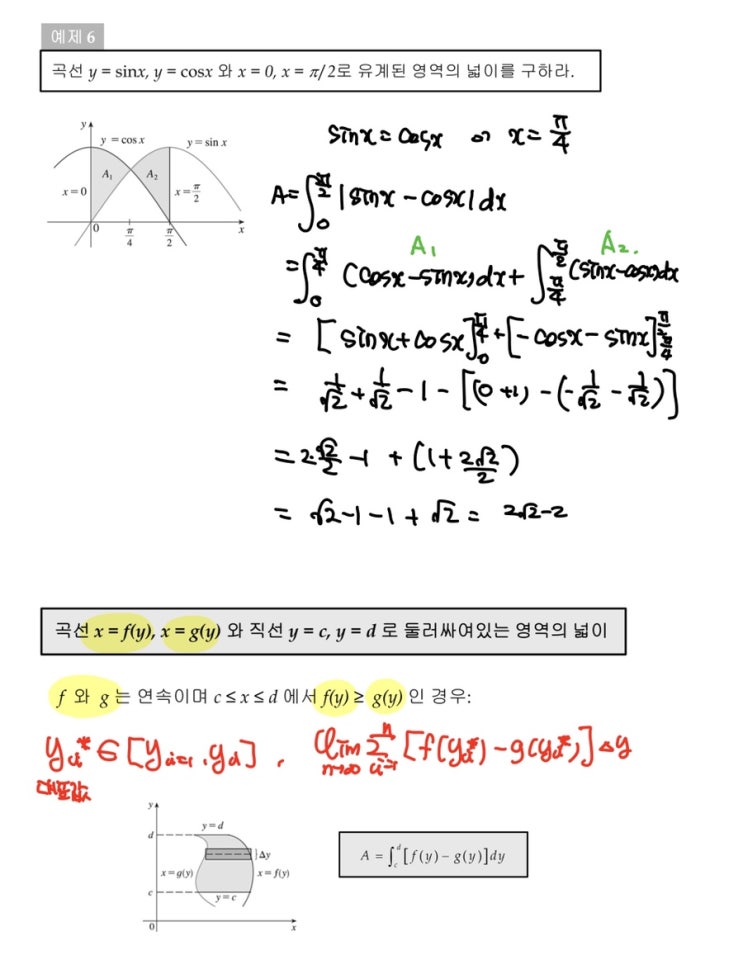 예제 6
곡선 y = sinx, y = cosx 와 x = 0, x = π/2로 유계된 영역의 넓이를 구하라.
sinx = cosx ⇒ x = π/4
y
y = cos x
y = sin x
A₁
A₂
x = 0
x = π/2
0
π/4
π/2
x
A = ∫₀^{π/2} |sinx − cosx| dx
A₁
A₂.
= ∫₀^{π/4} (cosx − sinx) dx + ∫_{π/4}^{π/2} (sinx − cosx) dx
= [sinx + cosx]₀^{π/4} + [−cosx − sinx]_{π/4}^{π/2}
= 1/√2 + 1/√2 − 1 − [(0+1) − (−1/√2 − 1/√2)]
= 2·√2/2 − 1 + (1 + 2√2/2)
= √2 − 1 − 1 + √2 = 2√2 − 2
곡선 x = f(y), x = g(y) 와 직선 y = c, y = d 로 둘러싸여있는 영역의 넓이
f 와 g 는 연속이며 c ≤ x ≤ d 에서 f(y) ≥ g(y) 인 경우:
yᵢ* ∈ [yᵢ₋₁, yᵢ], lim_{n→∞} Σ_{i=1}^{n} [f(yᵢ*) − g(yᵢ*)] Δy
대표값
y
y = d
d
Δy
x = g(y)
x = f(y)
c
y = c
0
x
A = ∫_c^d [f(y) − g(y)]dy